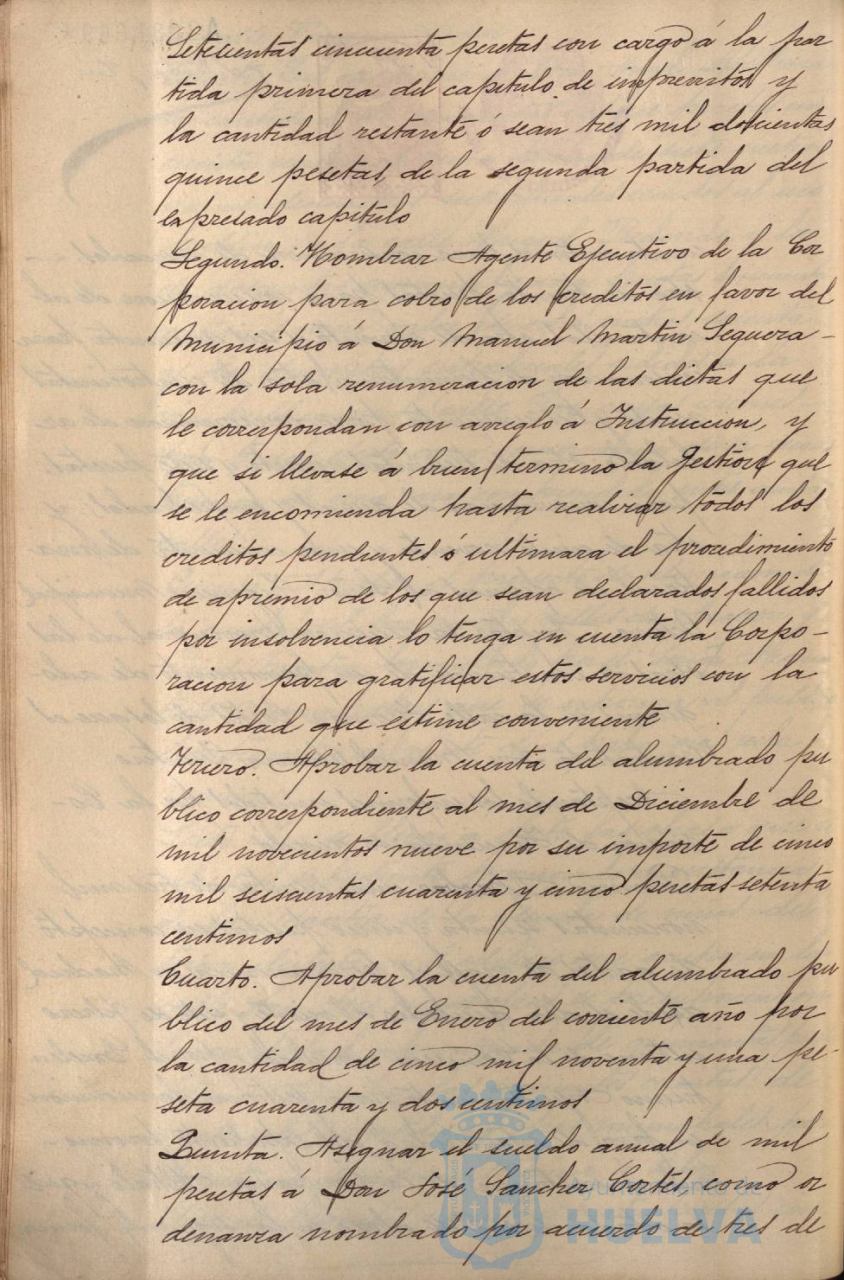 Setecientas cincuenta pesetas con cargo á la par
tida primera del capitulo de imprevistos y
la cantidad restante ó sean tres mil doscientas
quince pesetas, de la segunda partida del
expresado capitulo
Segundo. Nombrar Agente Ejecutivo de la Cor
poracion para cobro de los creditos en favor del
Municipio á Don Manuel Martin Seguera -
con la sola renumeracion de las dietas que
le correspondan con arreglo á Instruccion, y
que si llevase á buen termino la gestion que
se le encomienda hasta realizar todos los
creditos pendientes ó ultimara el procedimiento
de apremio de los que sean declarados fallidos
por insolvencia lo tenga en cuenta la Corpo-
racion para gratificar estos servicios con la
cantidad que estime conveniente
Tercero. Aprobar la cuenta del alumbrado pu
blico correspondiente al mes de Diciembre de
mil novecientos nueve por su importe de cinco
mil seiscientas cuarenta y cinco pesetas setenta
centimos
Cuarto. Aprobar la cuenta del alumbrado pu
blico del mes de Enero del corriente año por
la cantidad de cinco mil noventa y una pe-
seta cuarenta y dos centimos
Quinta. Asignar el sueldo anual de mil
pesetas á Don José Sanchez Cortés como or
denanza nombrado por acuerdo de tres de
Ayuntamiento de
HUELVA